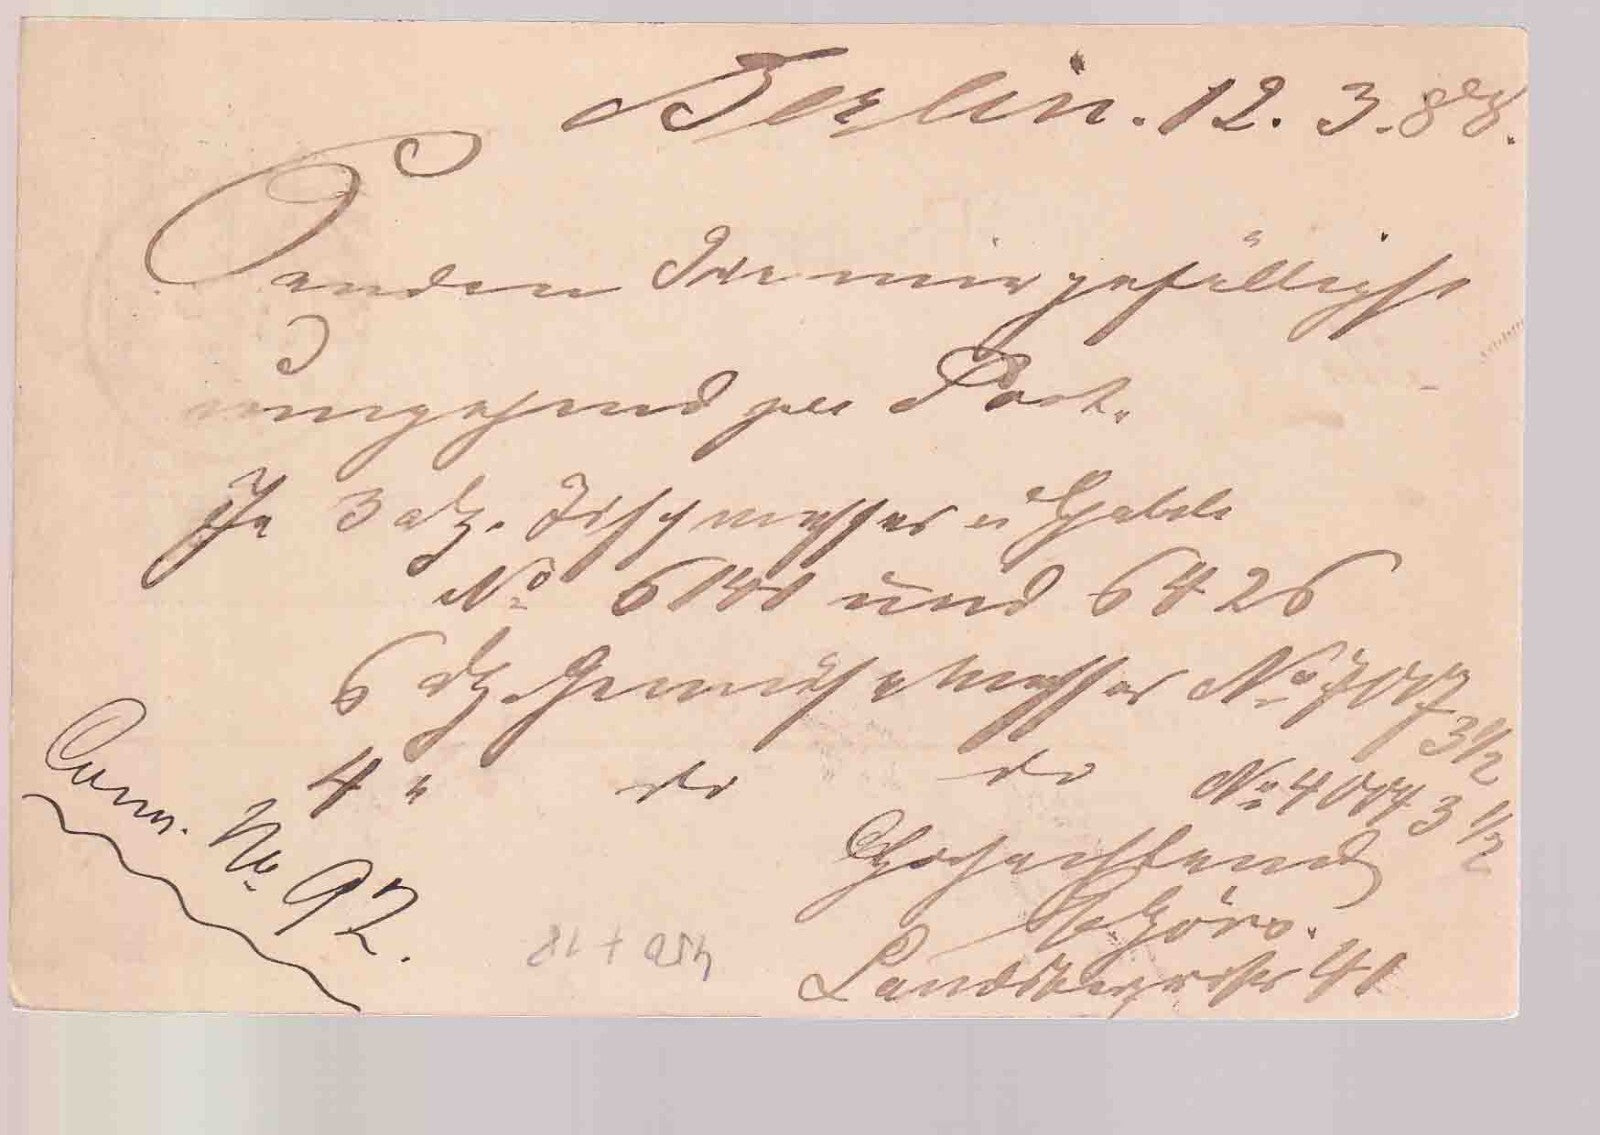 Berlin. 12. 3. 88.
Senden Sie mir gefälligst
umgehend per Post.
Je 3 dz. Tischmesser u Gabeln
No 6141 und 6426
6 dz. Gemüse Messer No 7077 3 1/2
4 " do do No 4077 3 1/2
Hochachtend
Landsbergerstr 41
Com. No 92.